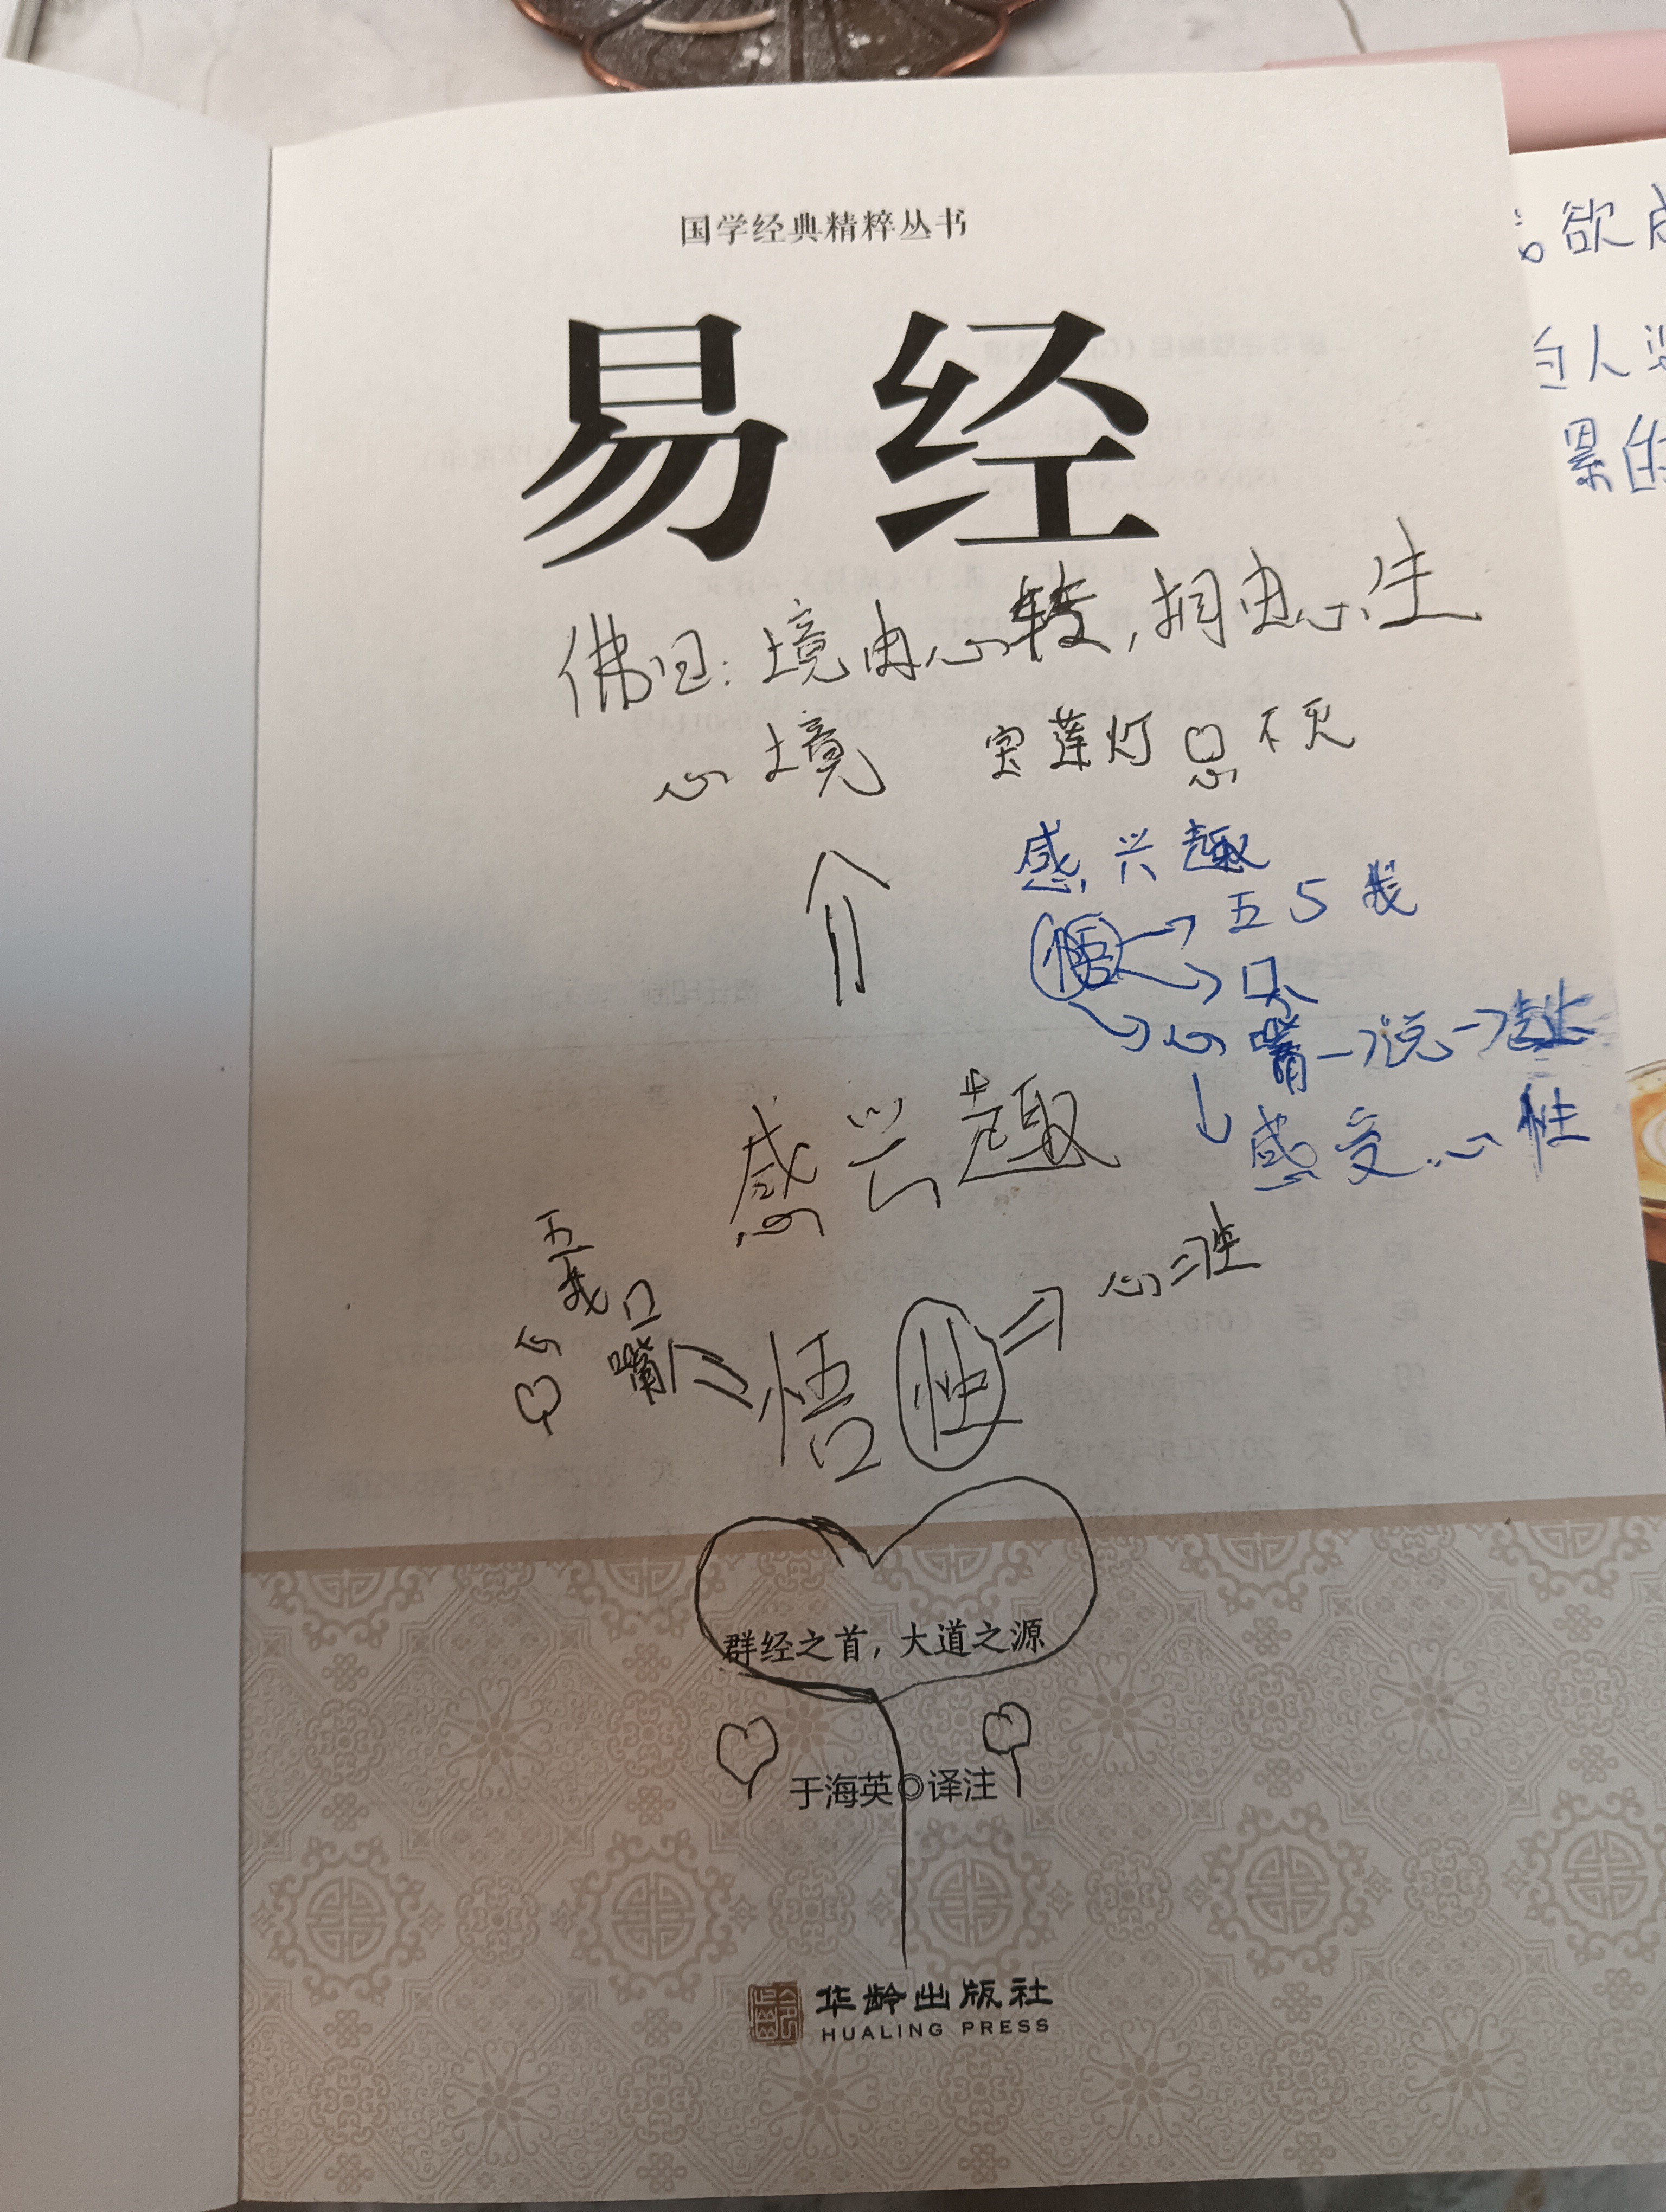 国学经典精粹丛书
易经
佛曰：境由心转，相由心生
心境 宝莲灯 不灭
感兴趣
悟 → 五 5 我
→ 口
→ 心 嘴 → 说 →
↓ 感受 心 性
感兴趣
五
我 口
心 嘴
悟 性 ⇒ 心
群经之首，大道之源
于海英◎译注
华龄出版社
HUALING PRESS
欲
人
累的